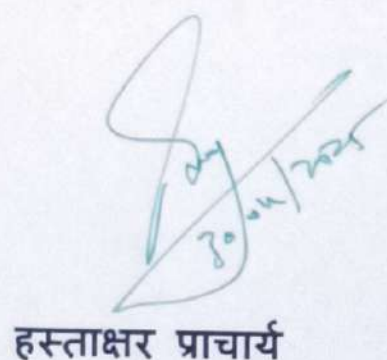 30/04/2025
हस्ताक्षर प्राचार्य